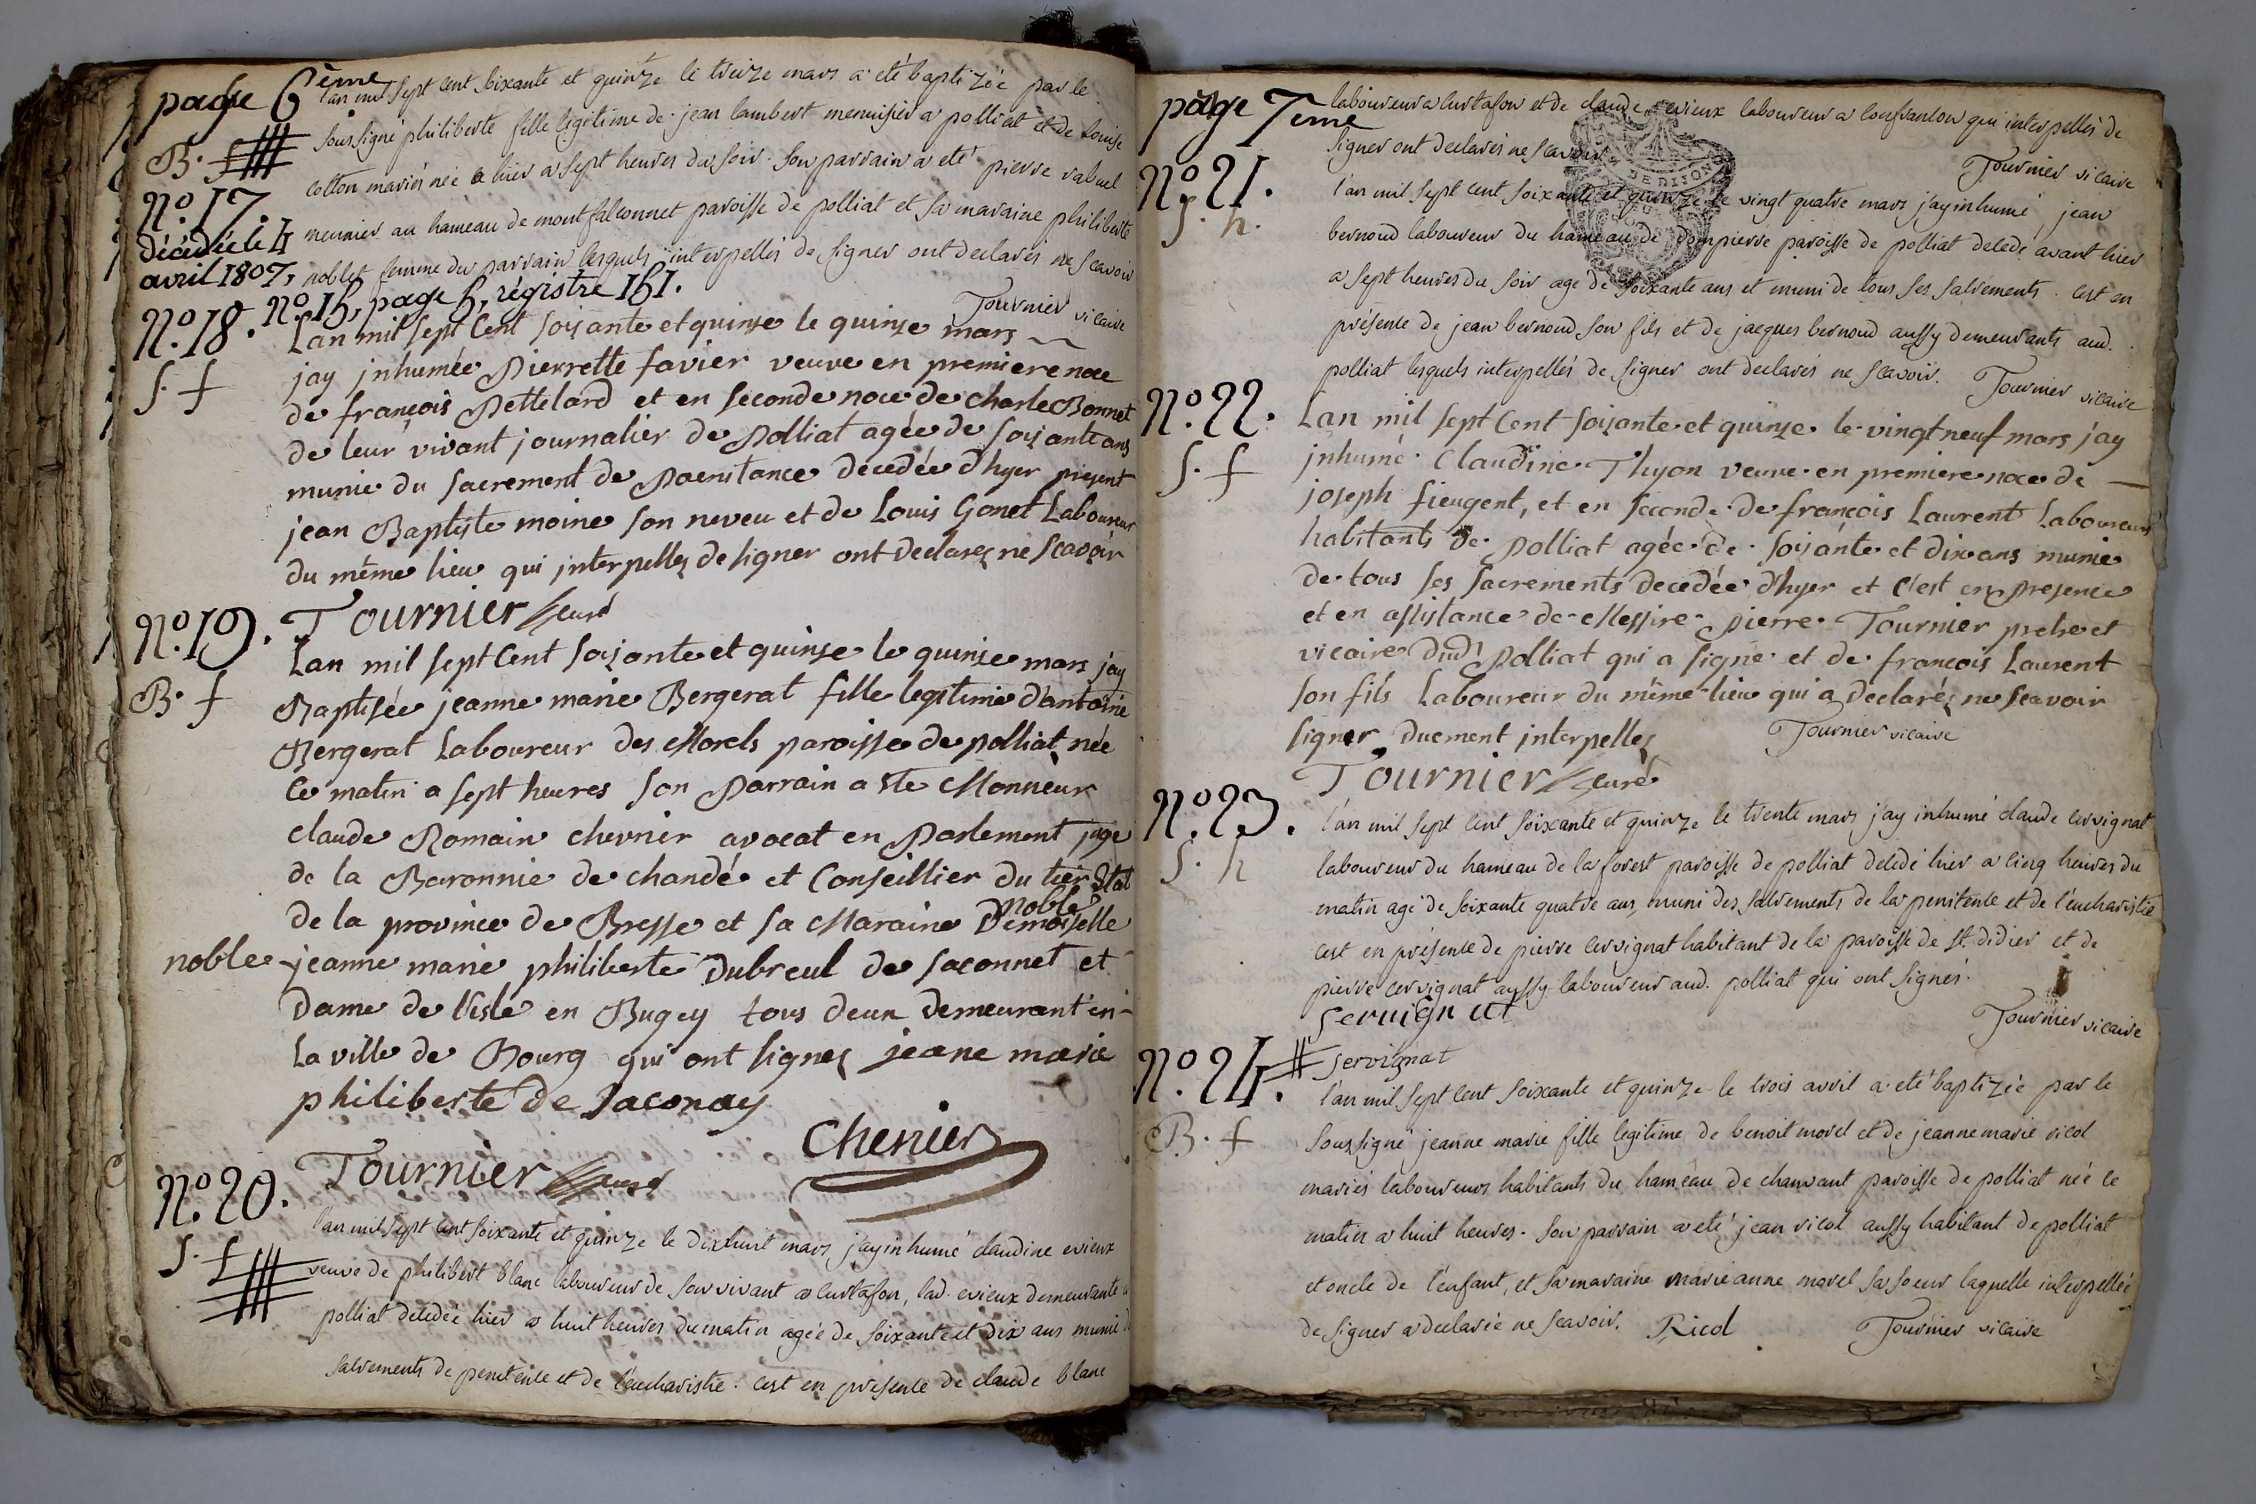 page 6ème
l'an mil sept cent soixante et quinze le treize mars a eté baptizée par le
B. f
soussigné philiberte fille legitime de jean lambert menuisier a polliat et de louise
N.º 17.
cotton mariés née hier a sept heures du soir. son parrain a eté pierre rabuel
décédée le 4
meunier au hameau de montfalconnet paroisse de polliat et sa maraine philiberte
avril 1807,
noblet femme du parrain lesquels interpellés de signer ont declarés ne scavoir
n.º 15, page 5, régistre 151.
Tournier vicaire
N.º 18.
Lan mil sept Cent soixante et quinse le quinse mars
S. f
jay jnhumée Pierrette favier veuve en premiere noce
de françois Pettelard et en seconde noce de charle Bonnet
de leur vivant journalier de Polliat agée de soixante ans
munie du sacrement de Paenitance décedée d'hyer present
jean Baptiste moine son neveu et de Louis Gonet Laboureur
du même lieu qui jnterpellez de signer ont declarez ne scavoir
Tournier curé
N.º 19.
Lan mil sept Cent soixante et quinse le quinse mars jay
B. f
Baptisée jeanne marie Bergerat fille legitime d'antoine
Bergerat Laboureur des Morels paroisse de polliat née
Ce matin a sept heures son Parrain a ete Monsieur
claude Romain chevrier avocat en Parlement juge
de la Baronnie de chandé et Conseillier du tier Etat
de la province de Bresse et sa Maraine Demoiselle
noble
noble jeanne marie philiberte Dubreul de saconnet et
Dame de l'isle en Bugey tous deux demeurant en
La ville de Bourg qui ont signez jeane marie
philiberte de Saconay
Chevrier
Tournier curé
N.º 20.
l'an mil sept cent soixante et quinze le dixhuit mars j'ay inhumé claudine evieux
S. f
veuve de philibert blanc laboureur de son vivant a curtafon, lad. evieux demeurante a
polliat decedée hier a huit heures du matin agée de soixante et dix ans munie des
sacrements de penitence et de l'eucharistie. cest en présence de claude blanc
page 7ème
laboureur a curtafon et de claude evieux laboureur a confranson qui interpellés de
signer ont declarés ne scavoir.
Tournier vicaire
DE DIJON
N.º 21.
l'an mil sept cent soixante et quinze le vingt quatre mars j'ay inhumé jean
S. h.
bernoud laboureur du hameau de dompierre paroisse de polliat decedé avant hier
a sept heures du soir agé de soixante ans et muni de tous ses sacrements. cest en
présence de jean bernoud son fils et de jacques bernoud aussy demeurants aud.
polliat lesquels interpellés de signer ont declarés ne scavoir.
Tournier vicaire
N.º 22.
Lan mil sept Cent soixante et quinse le vingt neuf mars j'ay
S. f
jnhumé Claudine Thyon veuve en premiere noce de
joseph fieugent, et en seconde de françois Laurent Laboureurs
habitants de Polliat agée de soixante et dix ans munie
de tous ses sacrements decedée d'hyer et c'est en presence
et en assistance de Messire pierre Tournier prestre et
vicaire dud. Polliat qui a signé et de francois Laurent
son fils Laboureur du même lieu qui a declaré ne scavoir
signer duement jnterpellez
Tournier vicaire
Tournier curé
N.º 23.
l'an mil sept cent soixante et quinze le trente mars j'ay inhumé claude cervignat
S. h
laboureur du hameau de la forest paroisse de polliat decedé hier a cinq heures du
matin agé de soixante quatre ans, muni des sacrements de la penitence et de l'eucharistie
cest en présence de pierre cervignat habitant de la paroisse de st. didier et de
pierre cervignat aussy laboureur aud. polliat qui ont signés.
servignat
Tournier vicaire
servignat
N.º 24.
l'an mil sept cent soixante et quinze le trois avril a eté baptizée par le
B. f
soussigné jeanne marie fille legitime de benoit morel et de jeanne marie ricol
mariés laboureurs habitants du hameau de chanvant paroisse de polliat née ce
matin a huit heures. son parrain a eté jean ricol aussy habitant de polliat
et oncle de l'enfant, et sa maraine marieanne morel sa soeur laquelle interpellée
de signer a declarée ne scavoir.
Ricol
Tournier vicaire